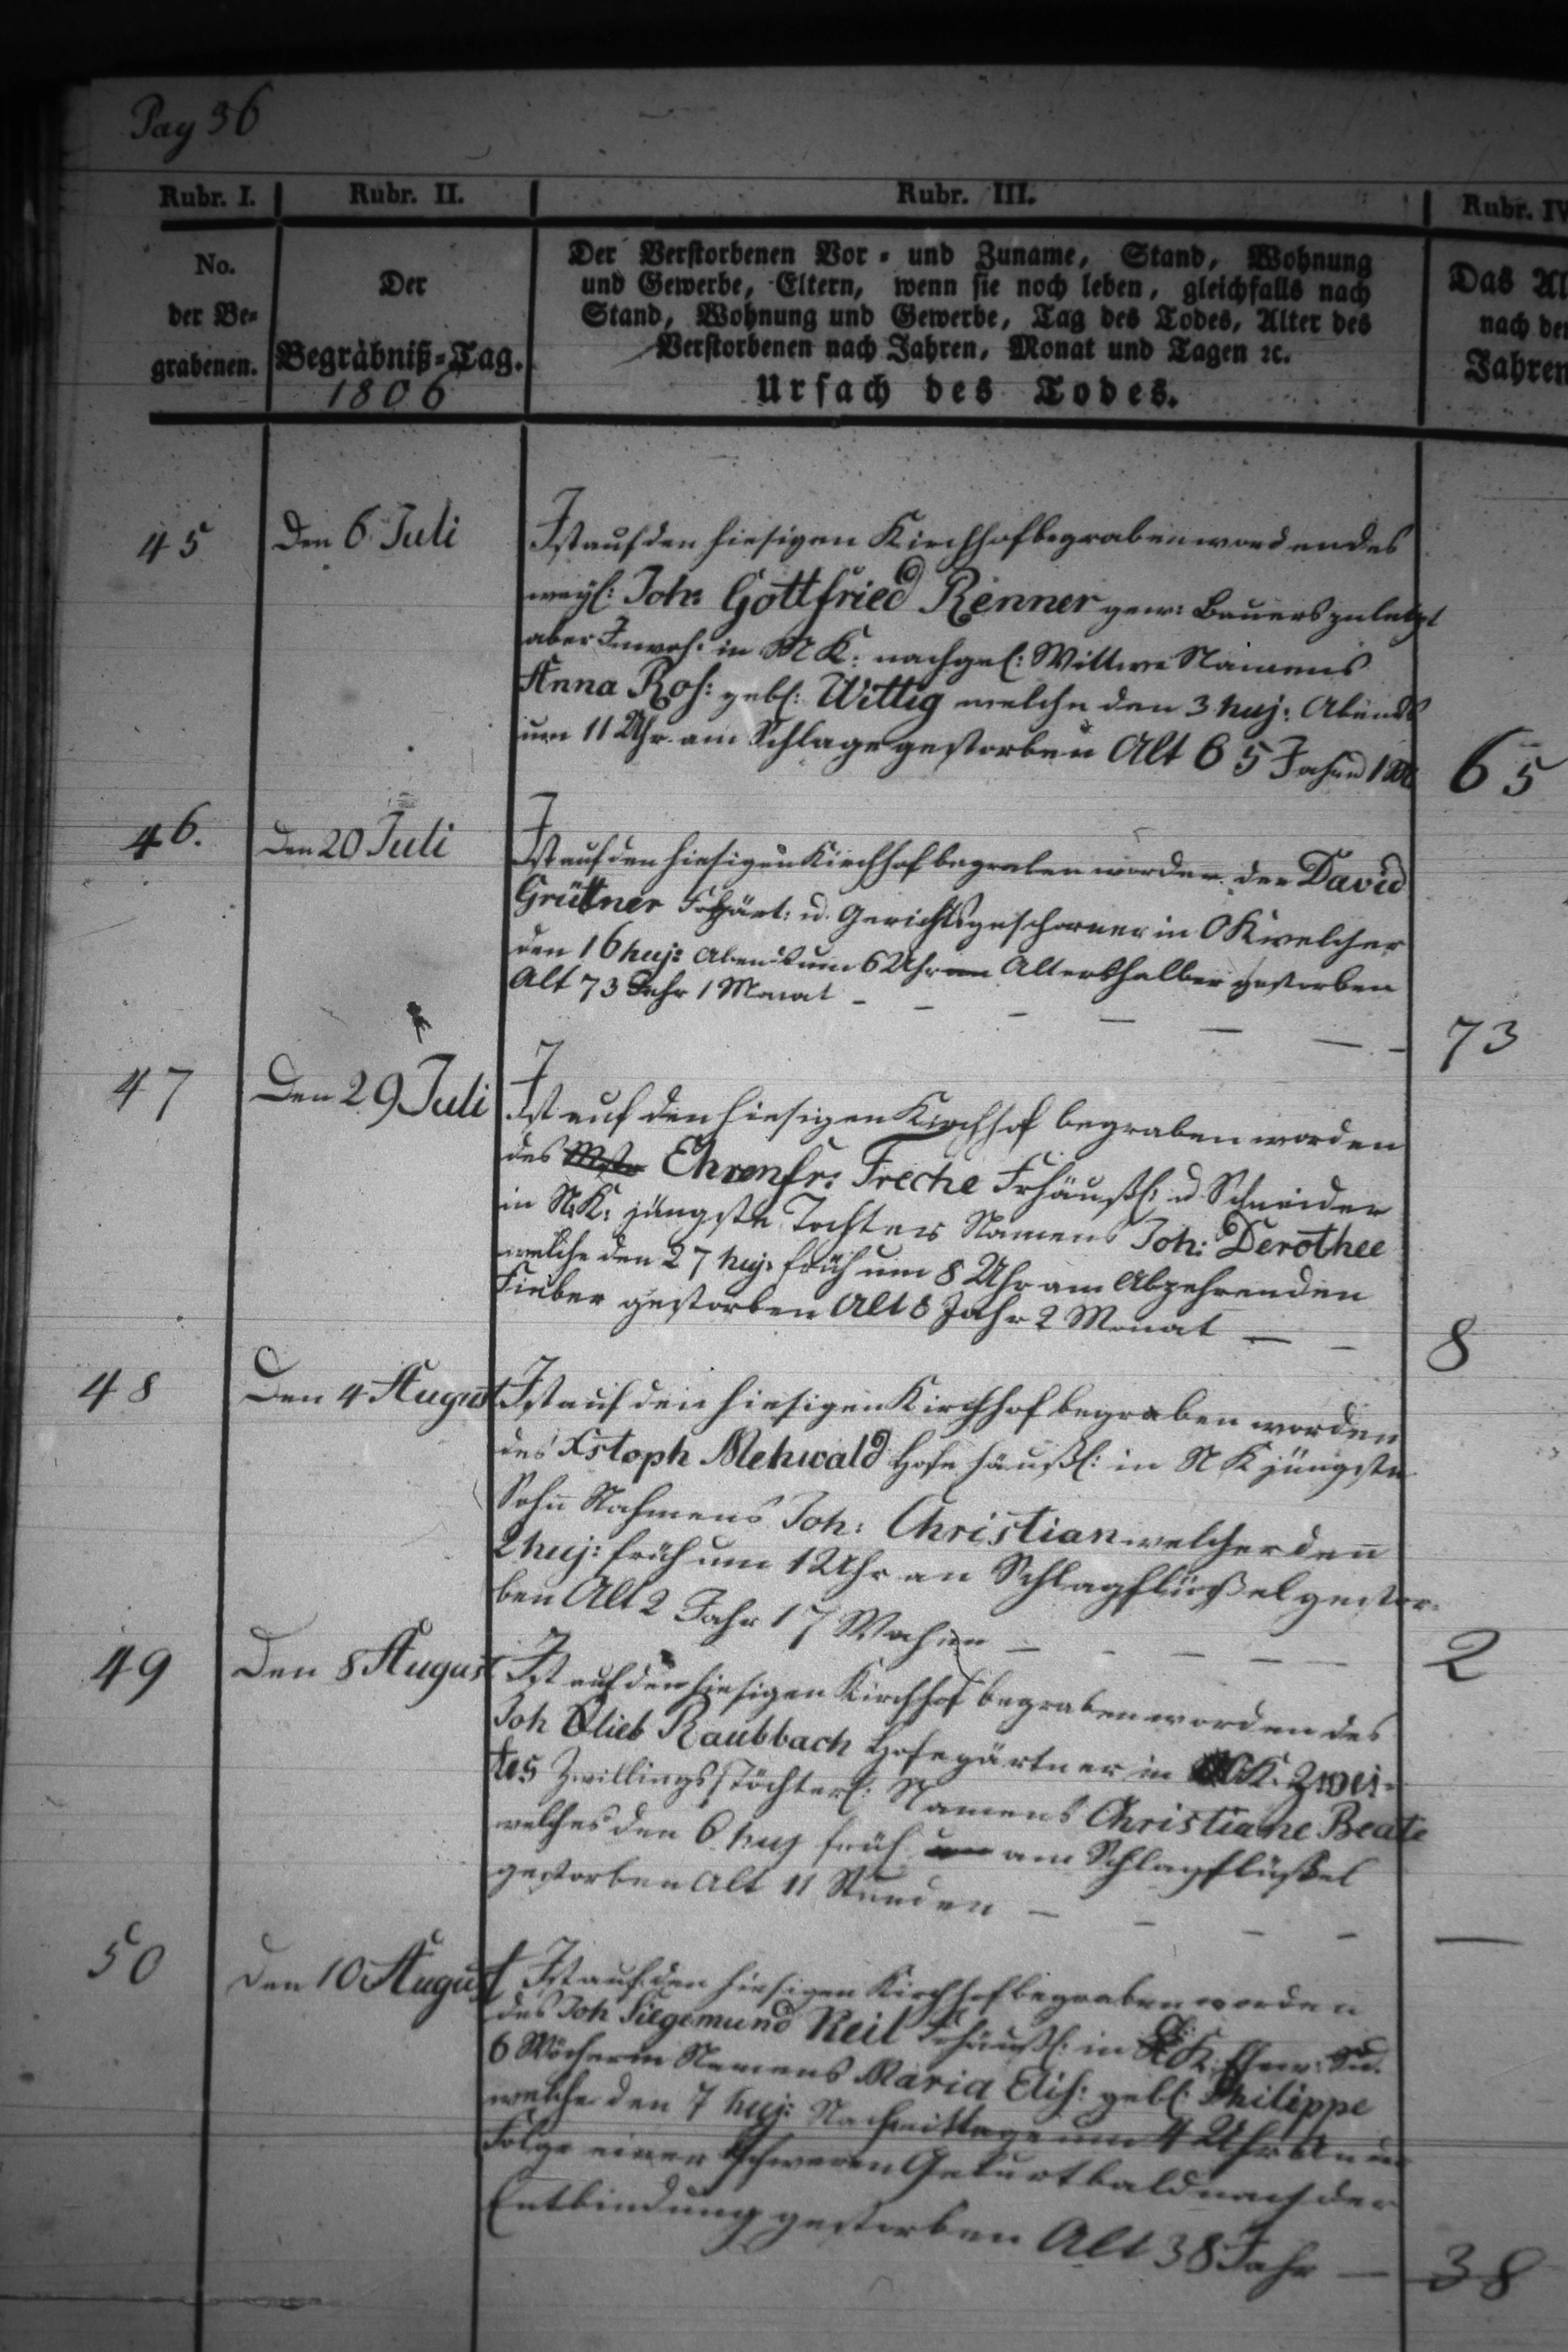 Pag 36
Rubr. I. Rubr. II. Rubr. III. Rubr. IV
No.
der Be-
grabenen.
Der
Begräbniß-Tag.
1806
Der Verstorbenen Vor- und Zuname, Stand, Wohnung
und Gewerbe, Eltern, wenn sie noch leben, gleichfalls nach
Stand, Wohnung und Gewerbe, Tag des Todes, Alter des
Verstorbenen nach Jahren, Monat und Tagen ꝛc.
Ursach des Todes.
Das Al
nach de
Jahren
45 Den 6 Juli Ist auf den hiesigen Kirchhof begraben worden des
weyl: Joh: Gottfried Renner gew: Bauers zuletzt
aber Inwoh: in M K: nachgel: Wittwe Namens
Anna Ros: gebl: Wittig welche den 3 huj: Abends
um 11 Uhr am Schlage gestorben Alt 65 Jahr 65
46. Den 20 Juli Ist auf den hiesigen Kirchhof begraben worden der David
Grüttner Frgärt: u. Gerichtsgeschworner in O K welcher
den 16 huj: Abends um 6 Uhr Altershalber gestorben
Alt 73 Jahr 1 Monat 73
47 Den 29 Juli Ist auf den hiesigen Kirchhof begraben worden
des Ehrenfr: Freche Frhäußl: u Schneider
in N.K: jüngste Tochter Namens Joh: Derothee
welche den 27 huj: früh um 8 Uhr am Abzehrenden
Fieber gestorben Alt 8 Jahr 2 Monat — 8
48 Den 4 August Ist auf den hiesigen Kirchhof begraben worden
des Xstoph Mehwald Hofehäußl: in N K jüngste
Sohn Nahmens Joh: Christian welcher den
2 huj: früh um 1 Uhr an Schlagflüßel gestor-
ben Alt 2 Jahr 17 Wochen — 2
49 Den 8 August Ist auf den hiesigen Kirchhof begraben worden des
Joh Glieb Raubbach Hofegärtner in K: Zwei-
tes Zwillingstöchterl: Namens Christiane Beate
welches den 6 huj früh am Schlagflüßel
gestorben Alt 11 Stunden — —
50 Den 10 August Ist auf den hiesigen Kirchhof begraben worden
des Joh Siegemund Keil Frhäußl: in K: Ehew:
6 Wöcherin Namens Maria Elis: gebl: Philippe
welche den 7 huj: Nachmittage um 4 Uhr
Folge einer schweren Geburt bald nach der
Entbindung gestorben Alt 38 Jahr — 38